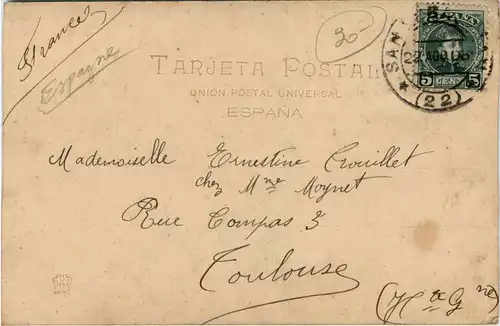 France
Espagne
20
TARJETA POSTAL
UNION POSTAL UNIVERSAL
ESPAÑA
ESPAÑA
5 CENT 5
SAN
AGO
(22)
Mademoiselle Ernestine Crouillet
chez Mme Moynet
Rue Compas 3
Toulouse
(Hte Gne)